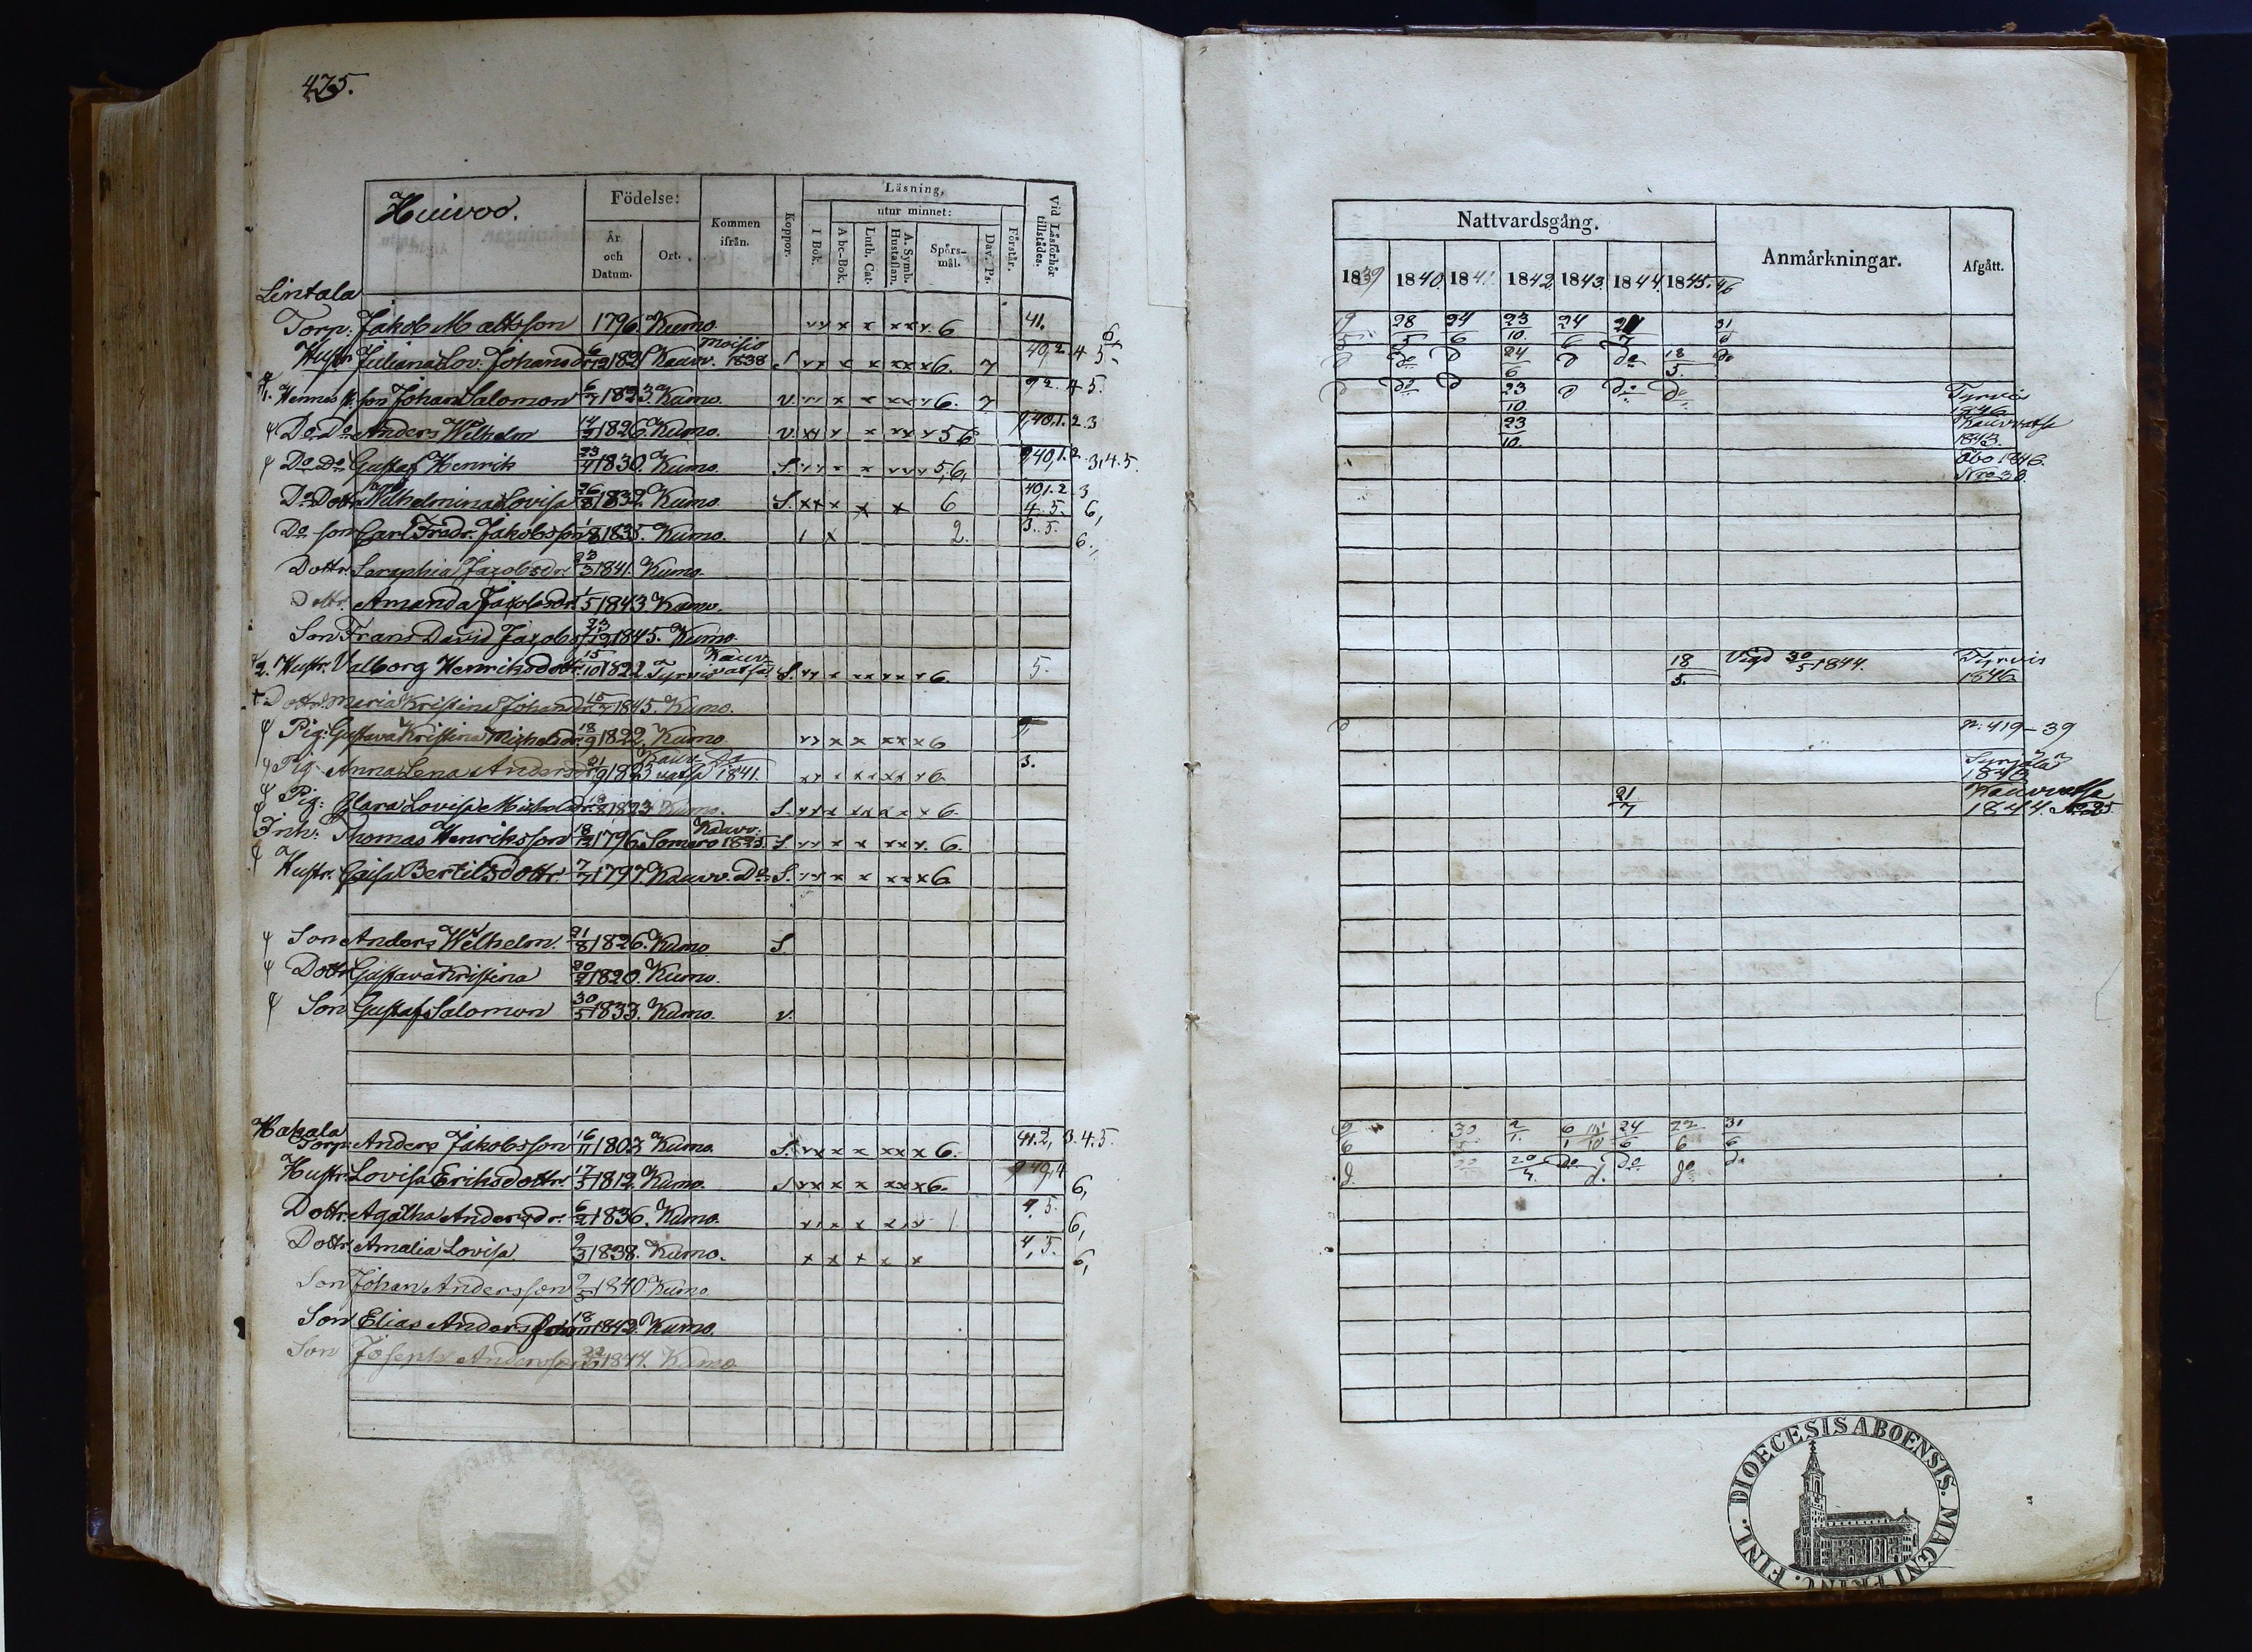 475.
Huivoo.
Födelse:
År och Datum.
Ort.
Kommen ifrån.
Koppor.
Läsning,
utur minnet:
I Bok.
Abc-Bok.
Luth. Cat.
A. Symb. Hustaflan.
Spörs-mål.
Dav. Ps.
Förstår.
Vid Läsförhör tillstådes.
Lintala
Torp. Jakob Mattsson 1796. Kumo. 6 41.
Hustr. Juliana Lov. Johansdr 6/12 1821 Kauv. Moisio 1838 S 6. 7 40,2. 4 5
1. Hennes k. son Johan Salomon 6/7 1823. Kumo. v. 6. 7 9 2. 4 5.
Do Do Anders Wilhelm 14/3 1826. Kumo. v. 5 6 9,40,1.2.3
Do Do Gustaf Henrik 23/4 1830. Kumo. S. 5,6, 9,40,1.2.3,4.5.
Do Dottr Wilhelmina Lovisa 26/8 1832 Kumo. S. 6 40,1.2.3 4.5. 6,
Do son Carl Fradr. Jakobsson 1/8 1835. Kumo. 2. 3.5. 6.,
Dottr. Seraphia Jacobsdr. 23/3 1841. Kumo.
Dottr. Amanda Jacobsdr 1/5 1843. Kumo.
Son Frans David Jacobs 23/12 1845. Kumo.
2. Hustr. Valborg Henriksdottr. 15/10 1822 Tyrvis Kauvvatsa. S. 6. 5.
Dottr. Maria Kristina Johansdr 15/7 1845. Kumo.
Pig: Gustava Kristina Michelsdr. 18/9 1822. Kumo 6
Pig. Anna Lena Andersdr. 21/9 1823 Kauvvatsa Do 1841. 6. 3.
Pig: Clara Lovisa Michelsdr. 1823 Kumo. S. 6.
Inh: Thomas Henriksson 18/12 1796 Somero Kauv: 1825. S 6.
Hustr. Caisa Bertilsdottr. 7/7 1797. Kauv. Do S. 6
Son Anders Wilhelm. 21/8 1826. Kumo S.
Dottr Gustava Kristina 20/2 1820. Kumo.
Son Gustaf Salomon 30/5 1833. Kumo. v.
Hakala
Torp: Anders Jakobsson 16/11 1803 Kumo S. 6. 41.2, 3.4.5.
Hustr: Lovisa Eriksdottr. 17/5 1812. Kumo. S 6. 9 40,4 6,
Dottr. Agatha Andersdr. 6/2 1836. Kumo. 1 4. 5. 6,
Dottr. Amalia Lovisa 9/3 1838. Kumo. 4, 5. 6,
Son Johan Andersson 2/3 1840. Kumo
Son Elias Andersson 18/11 1842. Kumo.
Son Joseph Andersson 22/10 1844. Kumo
Nattvardsgång.
Anmårkningar.
Afgått.
1839 1840. 1841. 1842. 1843. 1844. 1845. 46
9/5 28/5 24/6 23/10. 24/6 21/7 31/6
d do d 24/6 d do 18/5. do
d do d 23/10. d do do Tyrvis 1846
23/10. Kauvvatsa 1843.
Åbo 1846. Nro 38.
18/5. Vigd 30/5 1844. Tyrvis 1846
d n: 419-39
Syrjälä 1843
21/7 Kauvvatsa 1844. No 25.
9/6 30/5 2/1. 6/1 24/6 22/6 31/6
d. do 20/4. do d. do do do
FINL. DIOECESIS ABOENSIS. MAGNI PRINC.